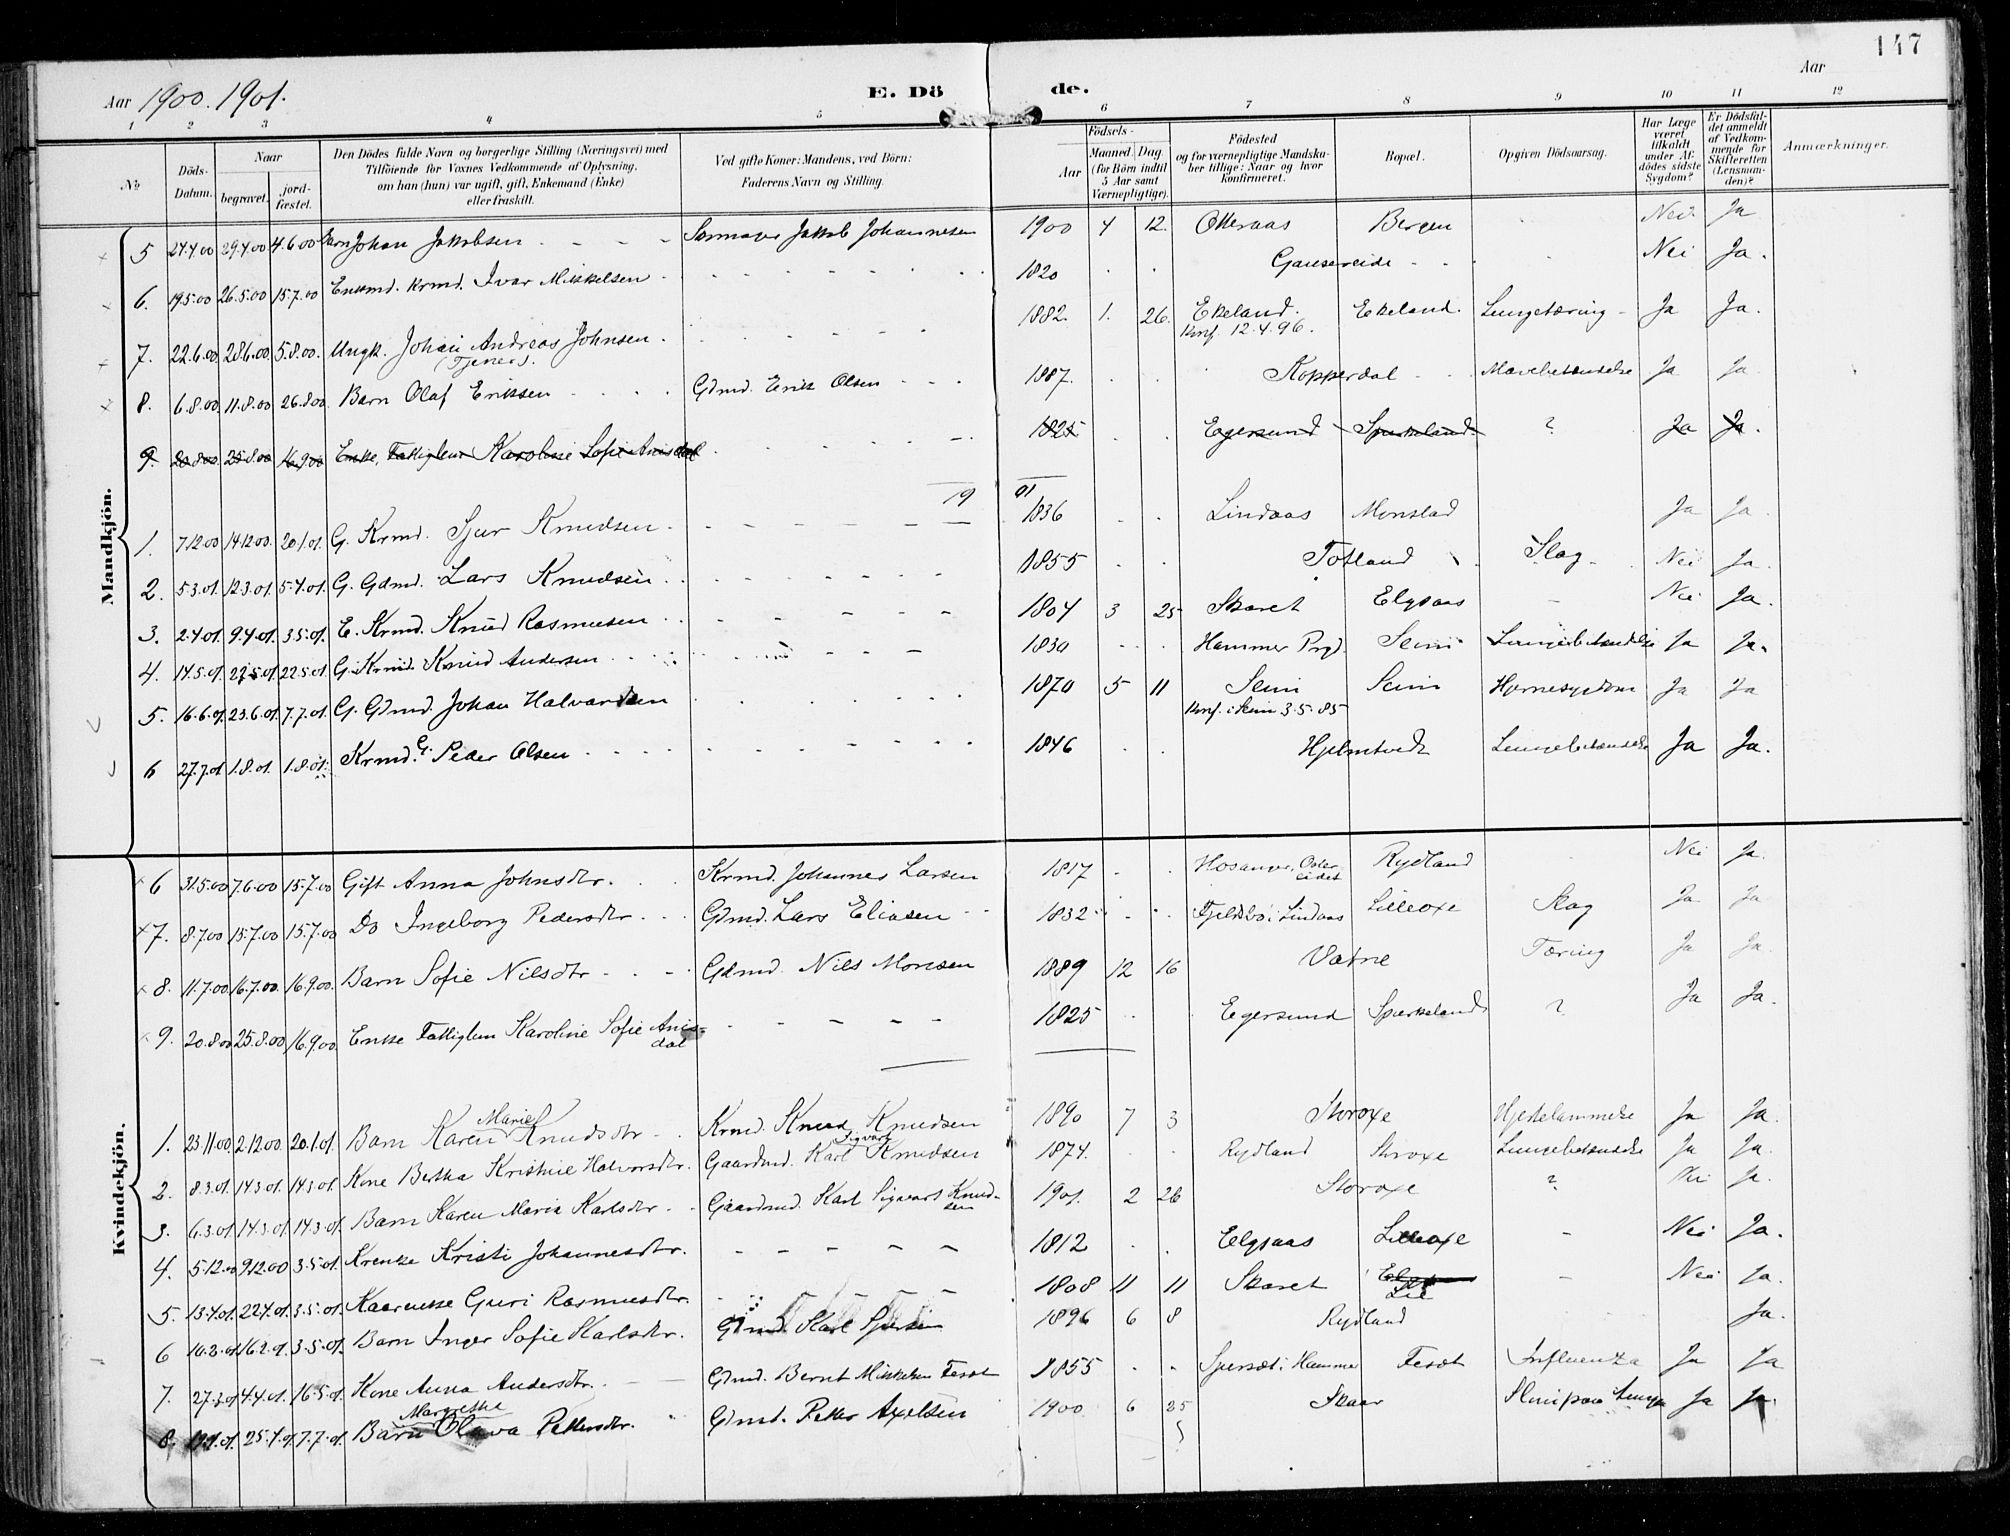 147
Aar 1900. 1901.
E. Dö
de.
Aar
1 2 3 4 5 6 7 8 9 10 11 12
№
Döds-Datum.
Naar
begravet.
jord-fæstet.
Den Dödes fulde Navn og borgerlige Stilling (Næringsvei) med
Tilföiende for Voxnes Vedkommende af Oplysning,
om han (hun) var ugift, gift, Enkemand (Enke)
eller fraskilt.
Ved gifte Koner: Mandens, ved Börn:
Faderens Navn og Stilling.
Födsels-
Aar
Maaned. Dag.
(for Börn indtil
5 Aar samt
Værnepligtige).
Födested
og for værnepligtige Mandska-
ber tillige: Naar og hvor
konfirmeret.
Bopæl.
Opgiven Dödsaarsag.
Har Læge
været
tilkaldt
under Af-
dödes sidste
Sygdom?
Er Dödsfal-
det anmeldt
af Vedkom-
mende for
Skifteretten
(Lensman-
den)?
Anmærkninger.
Mandkjön.
5 24.4.00 29.4.00 4.6.00 Barn Johan Jakobsen Jakob Johannesen 1900 4 12. Otteraas Bergen Nei Ja
6. 19.5.00 26.5.00 15.7.00 Enkmd. Krmd. Ivar Mikkelsen 1820 Gausereide Nei Ja.
7. 22.6.00 28.6.00 5.8.00. Ungk. Johan Andreas Johnsen. 1882. 1. 26. Ekeland. Ekeland. Lungetæring Ja Ja.
(Tjener). Konf. 12.4.96.
8. 6.8.00 11.8.00 26.8.00 Barn Olaf Eriksen Gdmd. Erik Olsen 1887. Kopperdal Mavebetændelse Ja Ja
9. 20.8.00 25.8.00 16.9.00 Enke, Fattiglem Karoline Sofie Anisdal 1825 Egersund Spurkeland. ? Ja Ja.
19 01
1. 7.12.00 14.12.00. 20.1.01. G. Krmd. Sjur Knudsen 1836 Lindaas Monslad Ja Ja.
2. 5.3.01. 12.3.01. 5.4.01. G. Gdmd. Lars Knudsen 1855 Totland Slag Nei Ja.
3. 2.4.01. 9.4.01. 3.5.01. E. Krmd. Knud Rasmusen 1804 3 25 Skaret Elgsaas Nei Ja.
4. 14.5.01 22.5.01 22.5.01 G. Krmd. Knud Andersen 1830 Hammer Prgd. Seim Lungebetændelse Ja Ja.
5. 16.6.01 23.6.01 7.7.01. G. Gdmd. Johan Halvardsen 1870 5 11 Seim Seim Hjernesygdom Ja Ja
Konf. i Seim 3.5.85
6 27.7.01 1.8.01. 1.8.01. Krmd. G. Peder Olsen 1846 Hjelmtvedt Lungebetændelse Ja Ja.
Kvindekjön.
6 31.5.00 7.6.00 15.7.00 Gift Anna Johnsdtr. Krmd. Johannes Larsen 1817 Hosanger, Oster- Rydland Nei Ja.
eidet
7. 8.7.00 15.7.00 15.7.00 Do Ingeborg Pedersdtr Gdmd. Lars Eliasen 1832 Fjeldsbø i Lindaas Lilleoxe Slag Ja Ja
8. 11.7.00. 16.7.00. 16.9.00. Barn Sofie Nilsdtr Gdmd. Nils Monsen 1889 12 16 Vatne Tæring Ja Ja.
9. 20.8.00 25.8.00 16.9.00. Enke Fattiglem Karoline Sofie Anis- 1825 Egersund Spurkeland ? Ja Ja.
dal
Marie
1. 23.11.00 2.12.00. 20.1.01. Barn Karen Knudsdtr Krmd. Knud Knudsen 1890 7 3 Storoxe Hjertelammelse Ja Ja.
Sigvart
2. 8.3.01. 14.3.01. 14.3.01. Kone Bertha Kristine Halvorsdtr. Gaardmd. Karl Knudsen 1874. Rydland Storoxe Lungebetændelse Ja Ja.
3. 6.3.01 14.3.01. 14.3.01. Barn Karen Maria Karlsdtr. Gaardmd. Karl Sigvart Knud- 1901. 2 26 Storoxe ? Nei Ja.
sen
4. 5.12.00 9.12.00 3.5.01. Krenke Kristi Johannesdtr. 1812 Elgsaas Lilleoxe Nei Ja.
5. 13.4.01 22.4.01. 3.5.01. Kaarenke Guri Rasmusdtr. 1808 11 11 Skaret Lie Nei Ja.
6 10.2.01 16.2.01. 3.5.01. Barn Inger Sofie Karlsdtr. Gdmd. Karl Sjursen 1896 6 8 Rydland Ja.
7. 27.3.01 4.4.01. 16.5.01. Kone Anna Andersdtr. Gdmd. Bernt Mikkelsen Festet 1855 Hammer Festet Influenza Ja Ja
Margrethe
8. 25. 7.7.01. Barn Olava Pettersdtr. Gdmd. Petter Axelsen 1900 6 25 Skaar Slim paa Lunge Ja Ja.